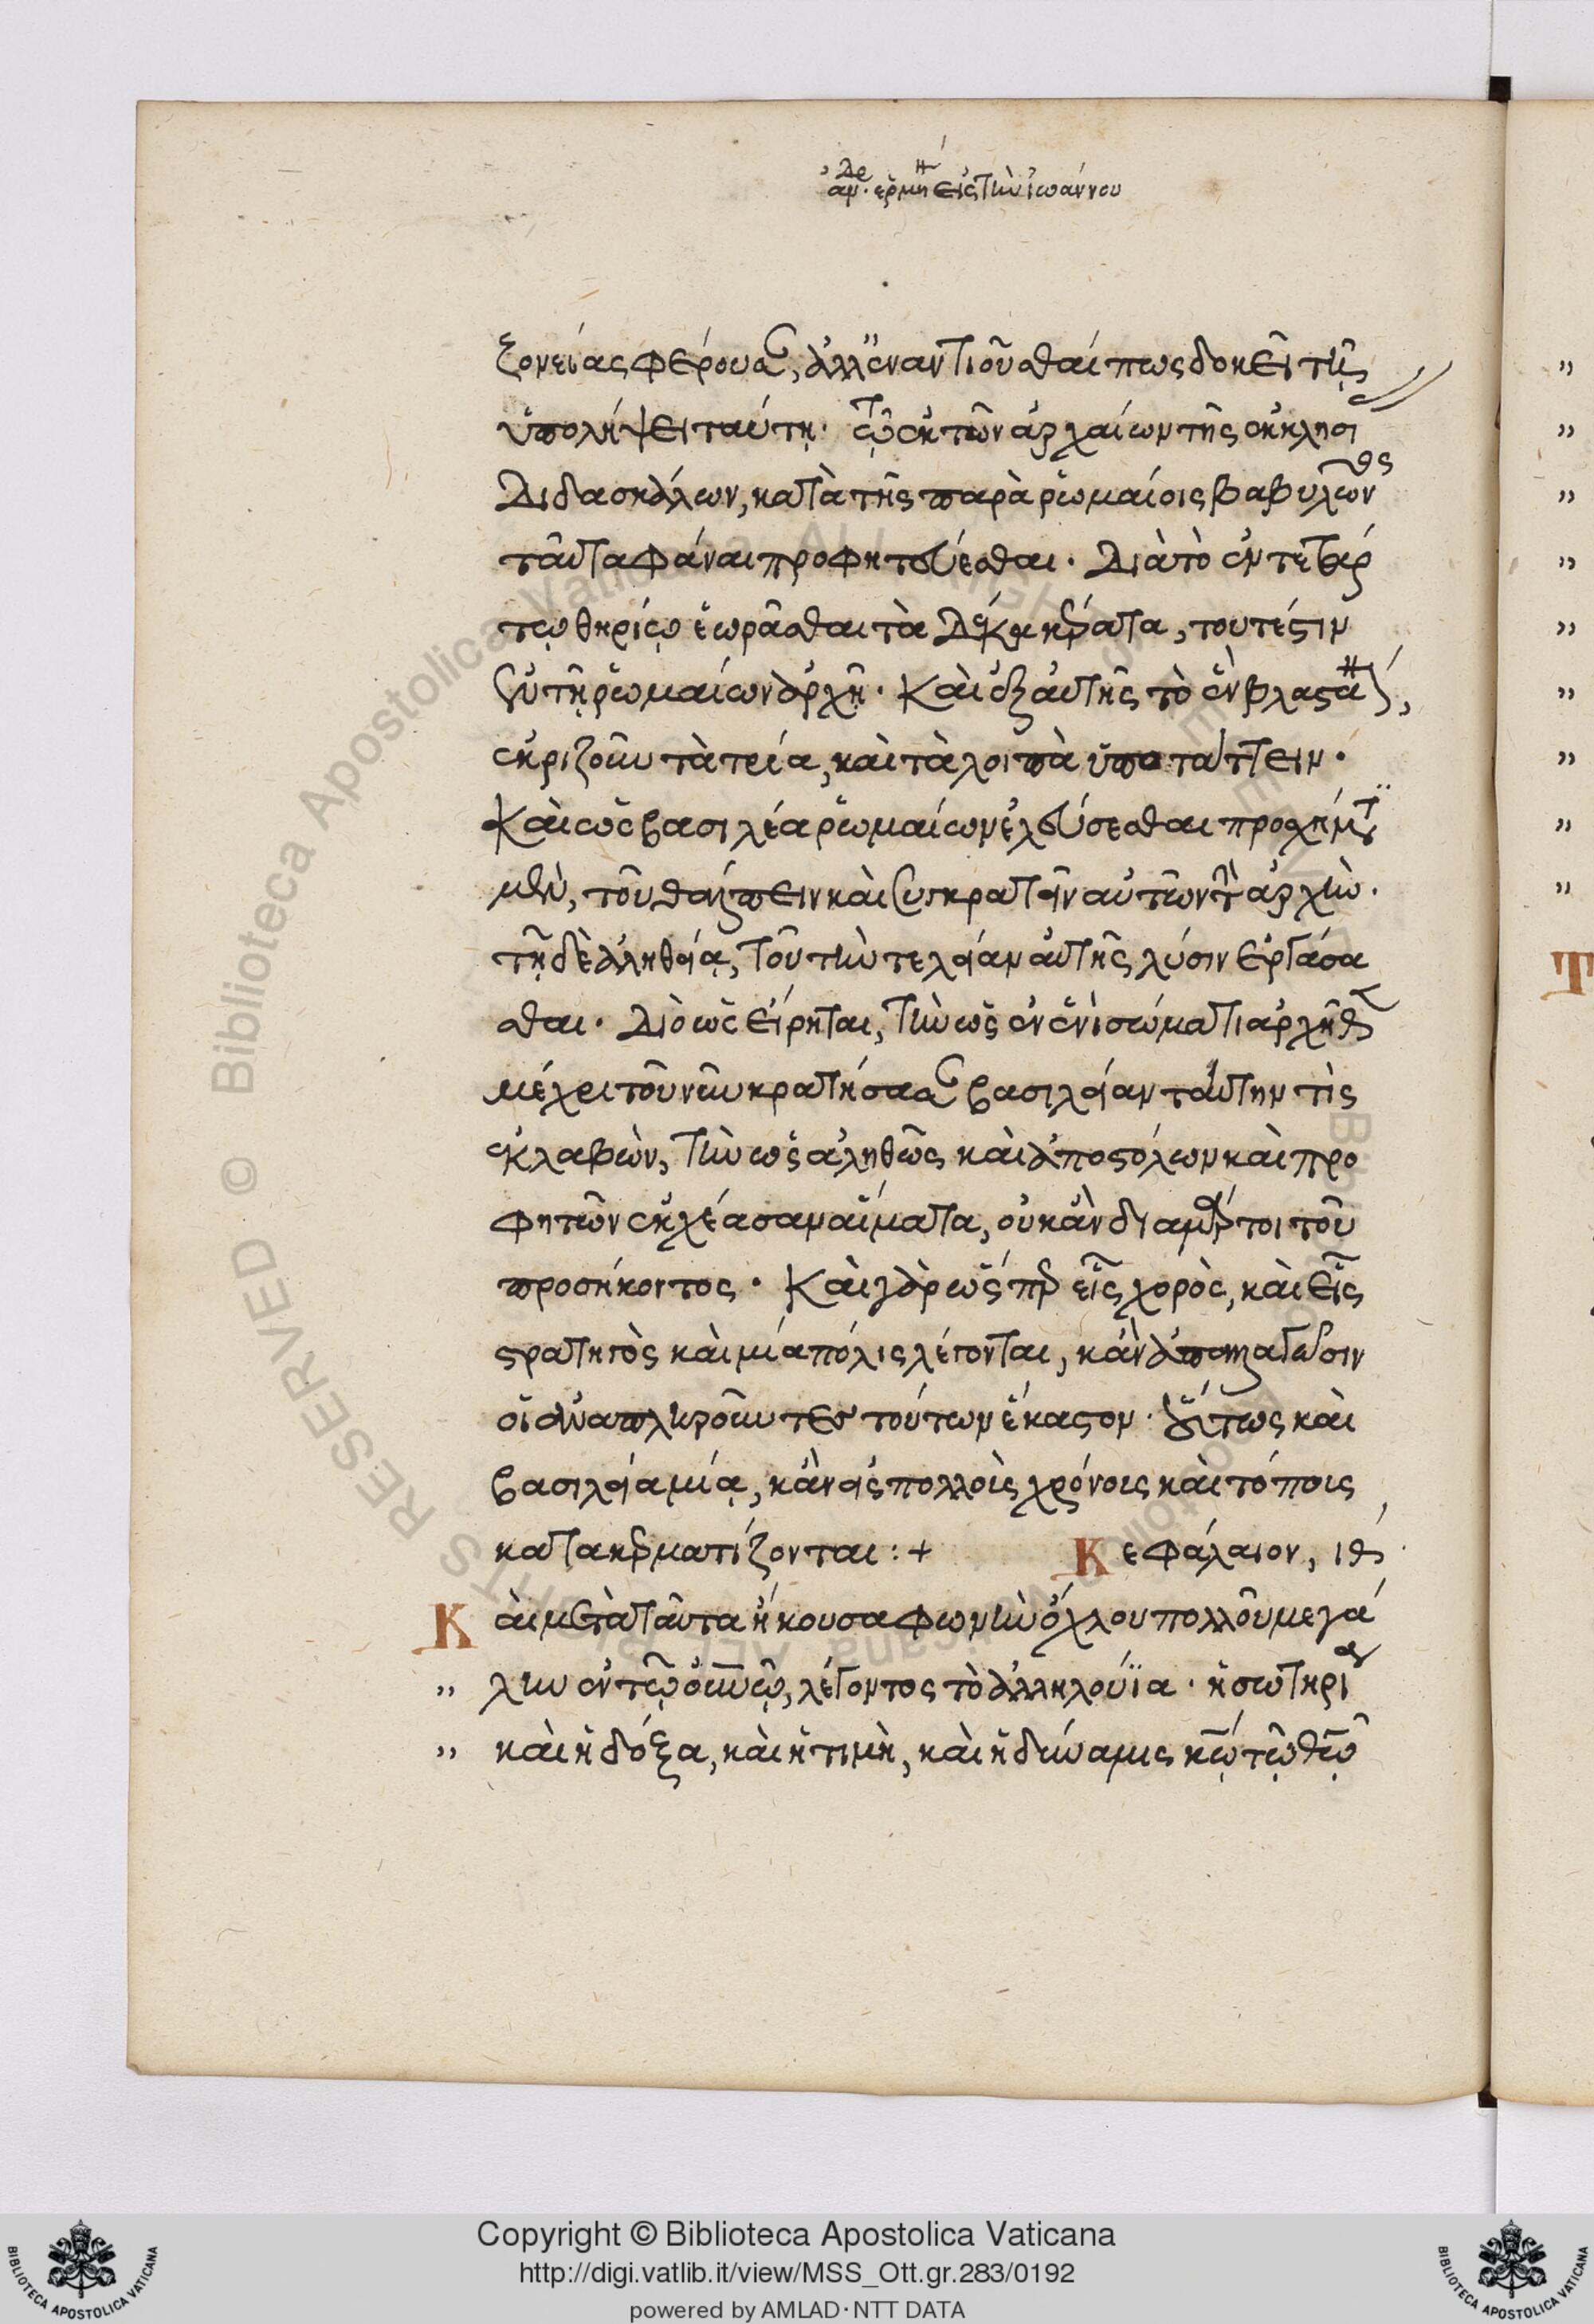 ἀνδρε. ἑρμη εἰς τὴν ἰωάννου
ζονείας φέρουσαν, ἀλλ' ἐναντιοῦσθαί πως δοκεῖ τῆς
ὑπολήψει ταύτῃ. τῶ ἐκ τῶν ἀρχαίων τῆς ἐκκλησι
διδασκάλων, κατὰ τῆς παρὰ ῥωμαίοις βαβυλῶνος
ταῦτα φάναι προφητεύεσθαι. διὰ τὸ ἐν τετάρ
τῳ θηρίῳ ἑωρᾶσθαι τὰ δέκα κέρατα, τουτέστιν
ἐν τῇ ῥωμαίων ἀρχῇ. καὶ ἐξ αὐτῆς τὸ ἓν βλαστῆσαν,
ἐκριζοῦν τὰ τρία, καὶ τὰ λοιπὰ ὑποτάττειν.
καὶ ὡς βασιλέα ῥωμαίων ἐλεύσεσθαι προσχήματι
μὲν, τοῦ θάλπειν καὶ συγκρατεῖν αὐτῶν τὴν ἀρχὴν.
τῇ δὲ ἀληθείᾳ, τοῦ τὴν τελείαν αὐτῆς λύσιν ἐργάσα
σθαι. διὸ ὡς εἴρηται, τὴν ὡς ἐν ἑνὶ σώματι ἀρχῆθεν
μέχρι τοῦ νῦν κρατήσασαν βασιλείαν ταύτην τὶς
ἐκλαβὼν, τὴν ὡς ἀληθῶς καὶ ἀποστόλων καὶ προ
φητῶν ἐκχέασαν αἵματα, οὐκ ἂν διαμάρτοι τοῦ
προσήκοντος. καὶ γὰρ ὥσπερ εἷς χορὸς, καὶ εἷς
στρατηγὸς καὶ μία πόλις λέγονται, κἂν ἀπαλλαγῶσιν
οἱ ἀναπληροῦντες τούτων ἕκαστον. οὕτως καὶ
βασιλεία μία, κἂν εἰς πολλοὶς χρόνοις καὶ τόποις
κατακερματίζονται :+ Κεφάλαιον, ιθ
Καὶ μετὰ ταῦτα ἤκουσα φωνὴν ὄχλου πολλοῦ μεγά
" λην ἐν τῷ οὐνῷ, λέγοντος τὸ ἀλληλούϊα. ἡ σωτηρία
" καὶ ἡ δόξα, καὶ ἡ τιμὴ, καὶ ἡ δύναμις κῷ τῷ θῷ
Copyright © Biblioteca Apostolica Vaticana
http://digi.vatlib.it/view/MSS_Ott.gr.283/0192
powered by AMLAD·NTT DATA